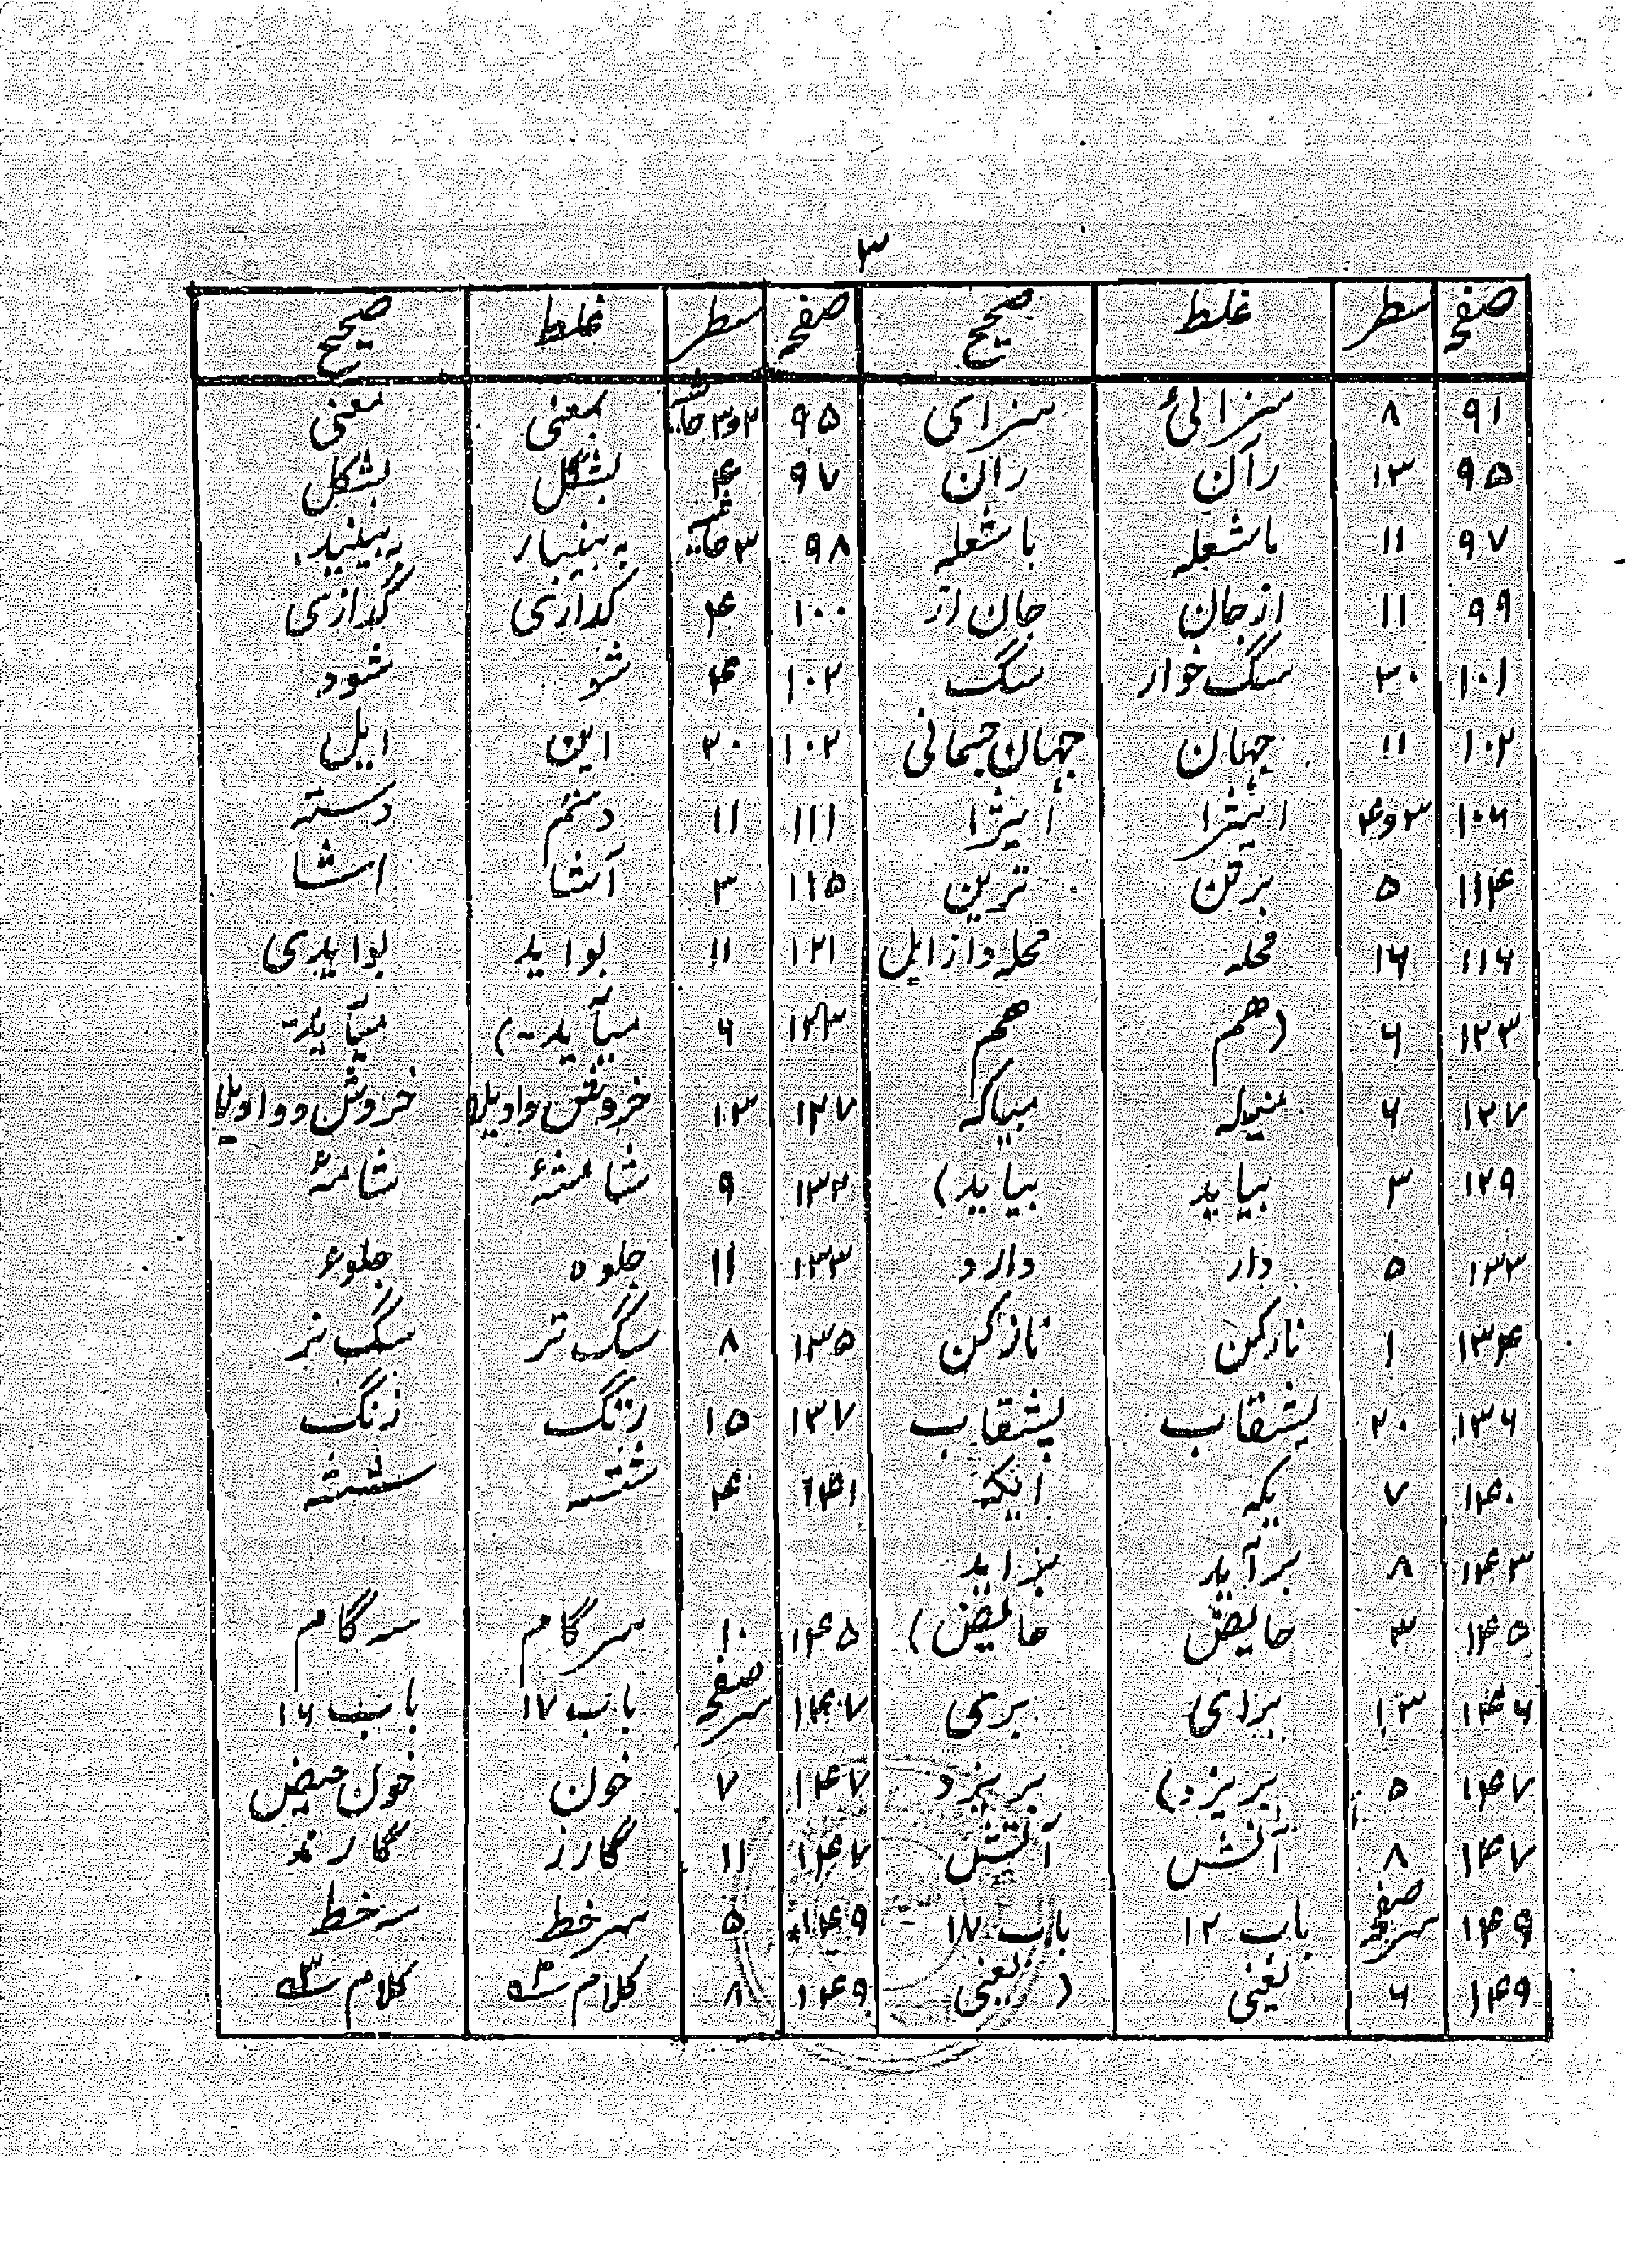 ۳
صفحه سطر غلط صحیح صفحه سطر غلط صحیح
۹۱ ۸ سزائی سزای ۹۵ ۲و۳ حاشیه بمعنی معنی
۹۵ ۱۳ رآن ران ۹۷ ۴ بشکل بشکل
۹۷ ۱۱ باشعله باشعله ۹۸ ۳ حاشیه به بینید
۹۹ ۱۱ از جان جان از ۱۰۰ ۴ گدازی
۱۰۱ ۲۰ سگ خوار سگ ۱۰۲ ۴ شو شود
۱۰۲ ۱۱ جهان جهان جسمانی ۱۰۲ ۲۰ این ایل
۱۰۶ ۳و۴ ۱۱۱ ۱۱ دستم دسته
۱۱۴ ۵ ترین ۱۱۵ ۳ آشا اشا
۱۱۶ ۱۶ محله محله و از ایل ۱۲۱ ۱۱ بواید بوایدی
۱۲۳ ۶ (هم هم ۱۲۳ ۶ میآید-) میآید-
۱۲۷ ۶ میاکه ۱۲۷ ۱۳ خروش واویلا خروش و واویلا
۱۲۹ ۳ بیاید بیاید) ۱۳۲ ۹
۱۳۲ ۵ دار دارد ۱۳۳ ۱۱ جلوه جلوء
۱۳۴ ۱ نارکن نازکن ۱۳۵ ۸ سگ تر سگ نر
۱۳۶ ۲۰ بشقاب پشقاب ۱۳۷ ۱۵ رنگ زنگ
۱۴۰ ۷ یکه آنیکه ۱۴۱ ۴
۱۴۳ ۸ برآید بزاید
۱۴۵ ۳ حایض حایض) ۱۴۵ ۱۰ سرگام سه گام
۱۴۶ ۱۳ برای بری ۱۴۷ سر صفحه باب ۱۷ باب ۱۶
۱۴۷ ۵ بریزد) بریزد ۱۴۷ ۷ خون خون حیض
۱۴۷ ۸ آتش ۱۴۷ ۱۱ گارز
۱۴۹ سر صفحه باب ۱۲ باب ۱۷ ۱۴۹ ۵ سرخط سه خط
۱۴۹ ۶ یعنی (یعنی ۱۴۹ ۸ کلام کلام